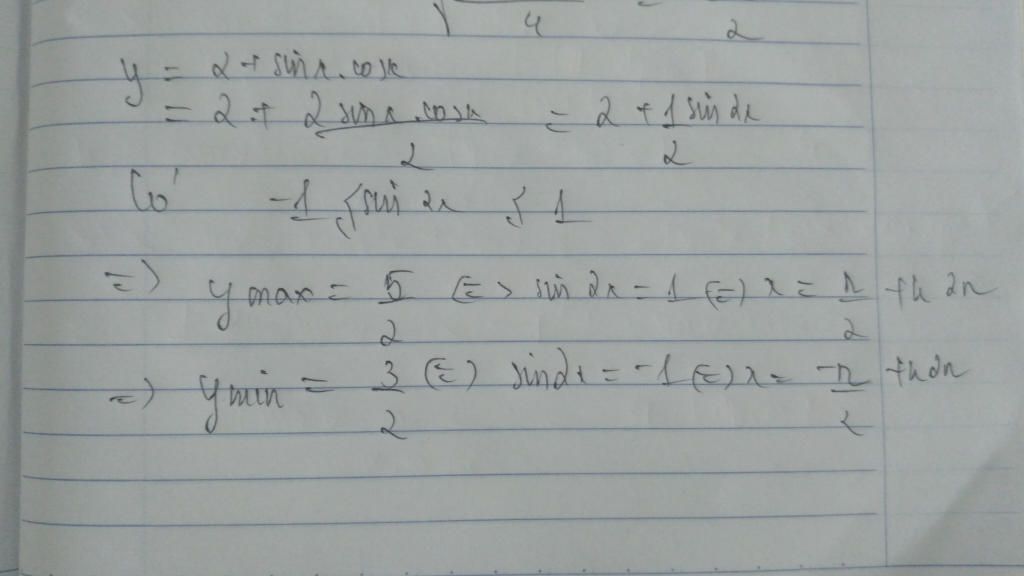 √ 4 = 2
y = 2 + sin x . cos x
= 2 + 2 sin x . cos x / 2 = 2 + 1/2 sin 2x
Có -1 ≤ sin 2x ≤ 1
=> y max = 5/2 <=> sin 2x = 1 <=> x = π/2 + k2π
=> y min = 3/2 <=> sin 2x = -1 <=> x = -π/2 + k2π